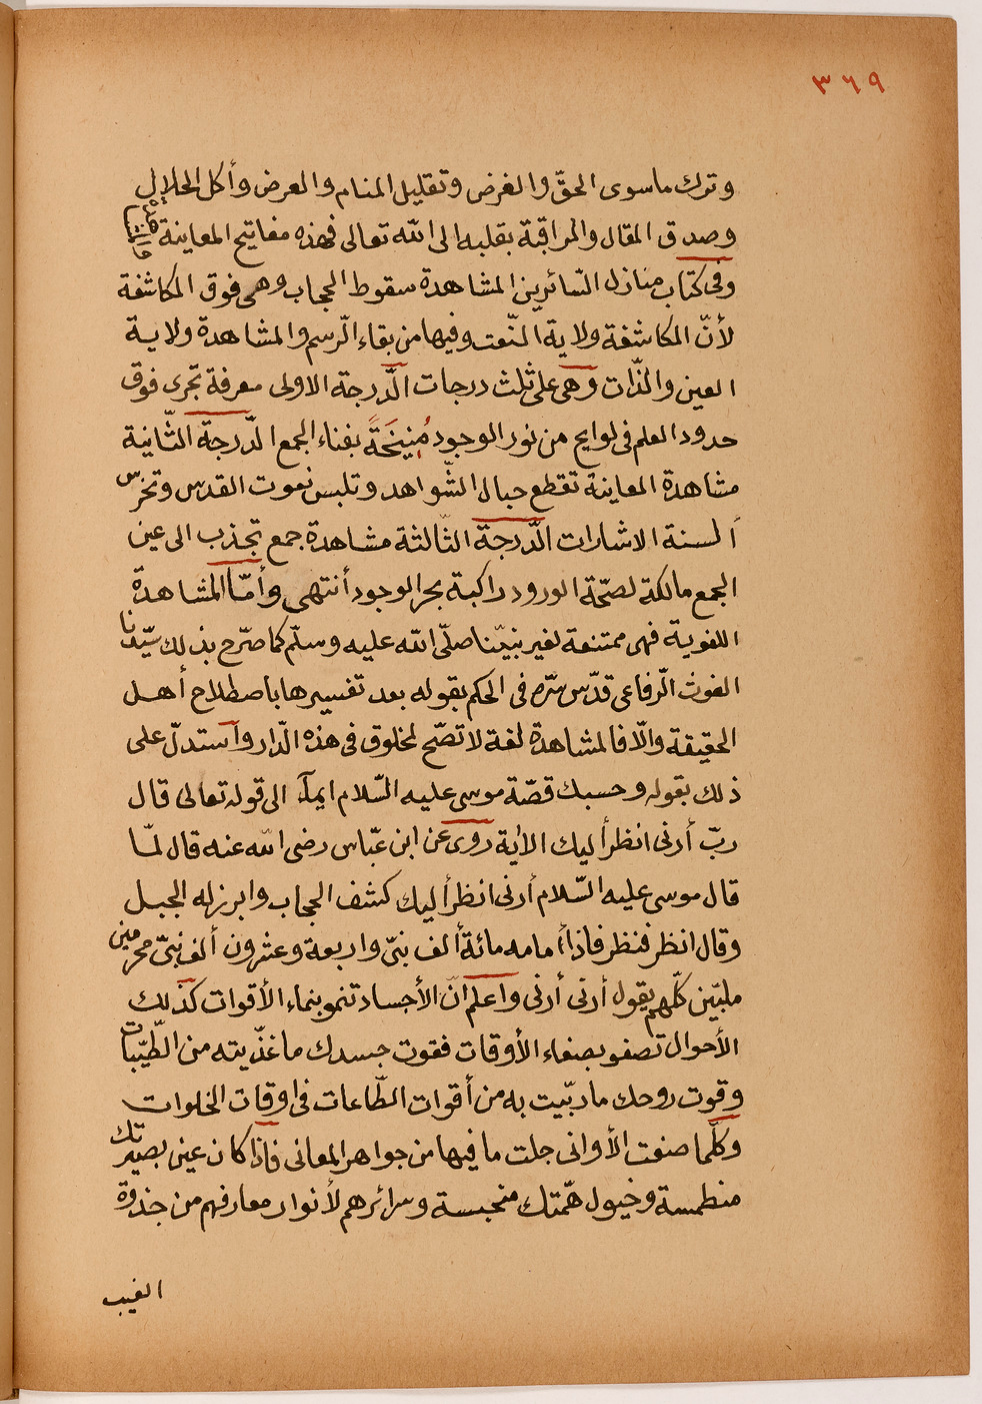 ٣٦٩
وترك ماسوى الحقّ والغرض وتقليل المنام والعرض وأكل الحلال
وصدق المقال والمراقبة بقلبه الى الله تعالى فهذه مفاتيح المعاينة
وفى كتاب منازل السّائرين المشاهدة سقوط الحجاب وهى فوق المكاشفة
لأنّ المكاشفة ولاية النّعت وفيها من بقاء الّرسم والمشاهدة ولاية
العين والذّات وهى على ثلث درجات الّدرجة الاولى معرفة تجرى فوق
حدود العلم فى لوايح من نور الوجود مُنِيخَةً بفناء الجمع الّدرجة الثّانية
مشاهدة المعاينة تقطع حبال الشّواهد وتلبس نعوت القدس وتخرّس
ألسنة الاشارات الّدرجة الثّالثة مشاهدة جمع تجذب الى عين
الجمع مالكة لصحّة الورود راكبة بحر الوجود أنتهى وأمّا المشاهدة
اللغوية فهى ممتنعة لغير نبيّنا صلّى الله عليه وسلّم كما صرّح بذلك سيّدنا
الغوث الّرفاعى قدّس سرّه فى الحكم بقوله بعد تفسيرها باصطلاح أهل
الحقيقة والّا فالمشاهدة لغة لا تصّح لمخلوق فى هذه الّدار وآستدلّ على
ذلك بقوله وحسبك قصّة موسى عليه السّلام ايمآء الى قوله تعالى قال
ربّ أرنى انظر أليك الأية روى عن ابن عبّاس رضى الله عنه قال لمّا
قال موسى عليه السّلام أرنى انظر أليك كشف الحجاب وابرز له الجبل
وقال انظر فنظر فاذا أمامه مائة ألف نبىّ واربعة وعشرون ألف نبىّ محرمين
ملبّين كلّهم يقول أرنى أرنى وآعلم انّ الأجساد تنمو بنماء الأقوات كذلك
الأحوال تصفو بصفاء الأوقات فقوت جسدك ما غذّيته من الطّيّبات
وقوت روحك ما ربّيت به من أقوات الطّاعات فى اوقات الخلوات
وكلّما صفت الأوانى جلت ما فيها من جواهر المعانى فاذا كان عين بصيرتك
منطمسة وخيول همّتك منحبسة وسرائرهم لأنوار معارفهم من جذوة
الغيب